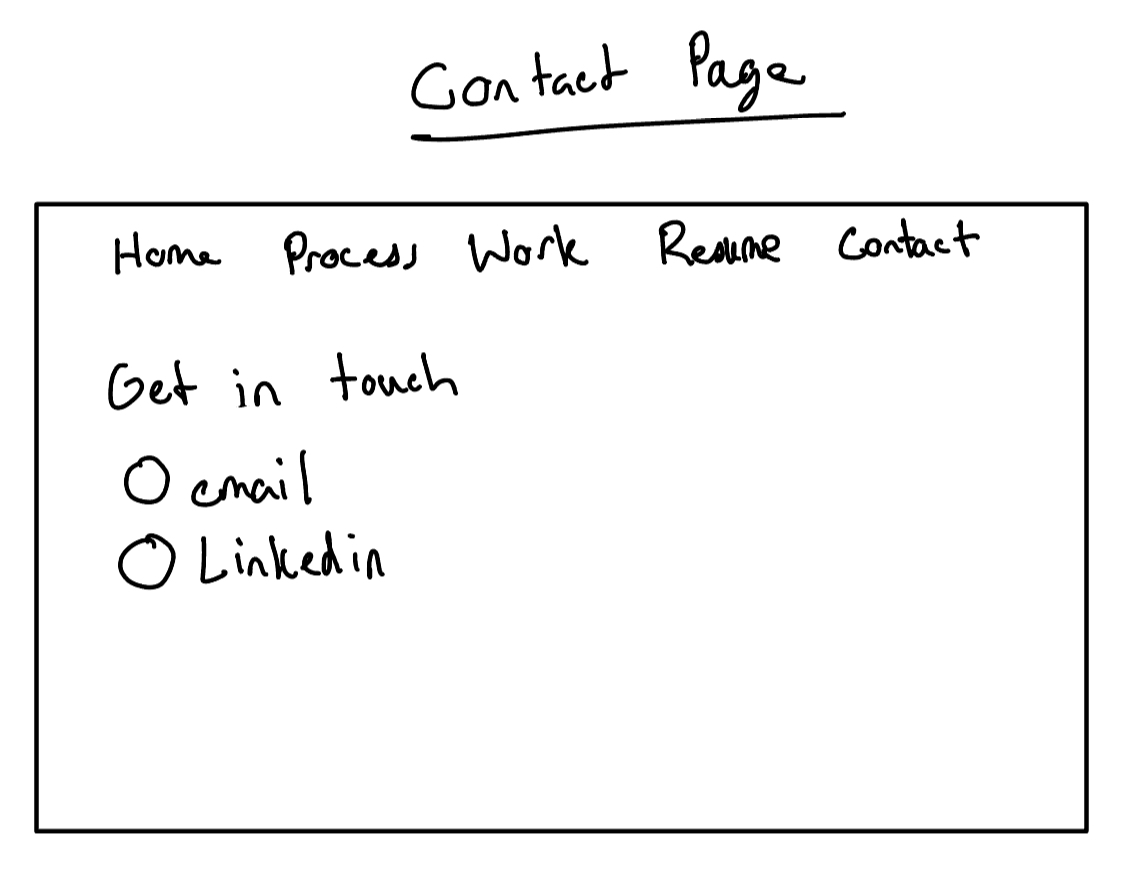 Contact Page
Home Process Work Resume Contact
Get in touch
email
Linkedin